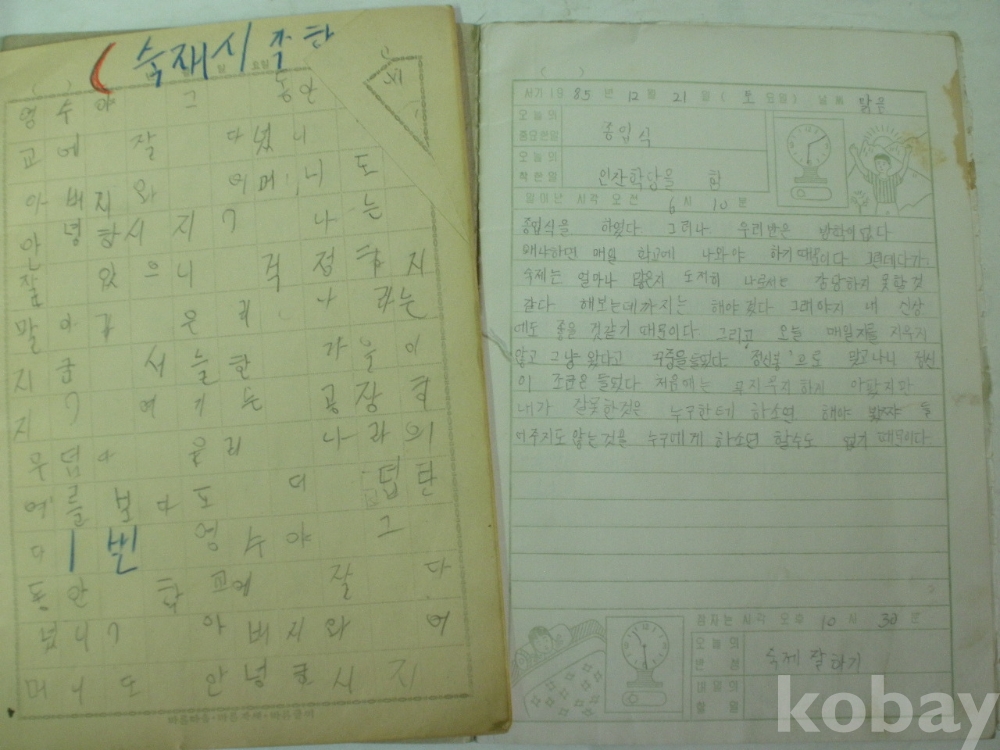 숙재시작
영수야 그 동안
교에 잘 다녔니
아버지와 어머니도
안녕하시지? 나는
잘 있으니 걱정하지
말아라 우리 나라는
지금 서늘한 가을이
지? 여기는 공장히
무덥다 우리 나라의
여름보다도 더 덥단
다 1번 영수야 그
동안 학교에 잘 다
녔니? 아버지와 어
머니도 안녕하시지
서기 19 85년 12월 21일 ( 토 요일) 날씨 맑음
오늘의 중요한일
종입식
오늘의 착한일
인간학당을 함
일어난 시각 오전 6시 10분
종입식을 하였다 그러나 우리반은 방학이 없다
왜냐하면 매일 학교에 나와야 하기 때문이다 그런데다가
숙제는 얼마나 많은지 도저히 나로서는 감당하지 못할것
같다 해보는데까지는 해야 겠다 그래야지 내 신상
에도 좋을 것같기 때문이다 그리고 오늘 매일지를 지우지
않고 그냥 왔다고 꾸중을 들었다 '정신봉'으로 맞고나니 정신
이 조금은 들었다 처음에는 부지룩지 하지 아팠지만
내가 잘못한것은 누구한테 하소연 해야 봤자 들
어주지도 않는것을 누구에게 하소연 할수도 없기 때문이다
잠자는 시각 오후 10시 30분
오늘의 반성
숙제 잘하기
내일의 할일
바른마음·바른자세·바른글씨
kobay